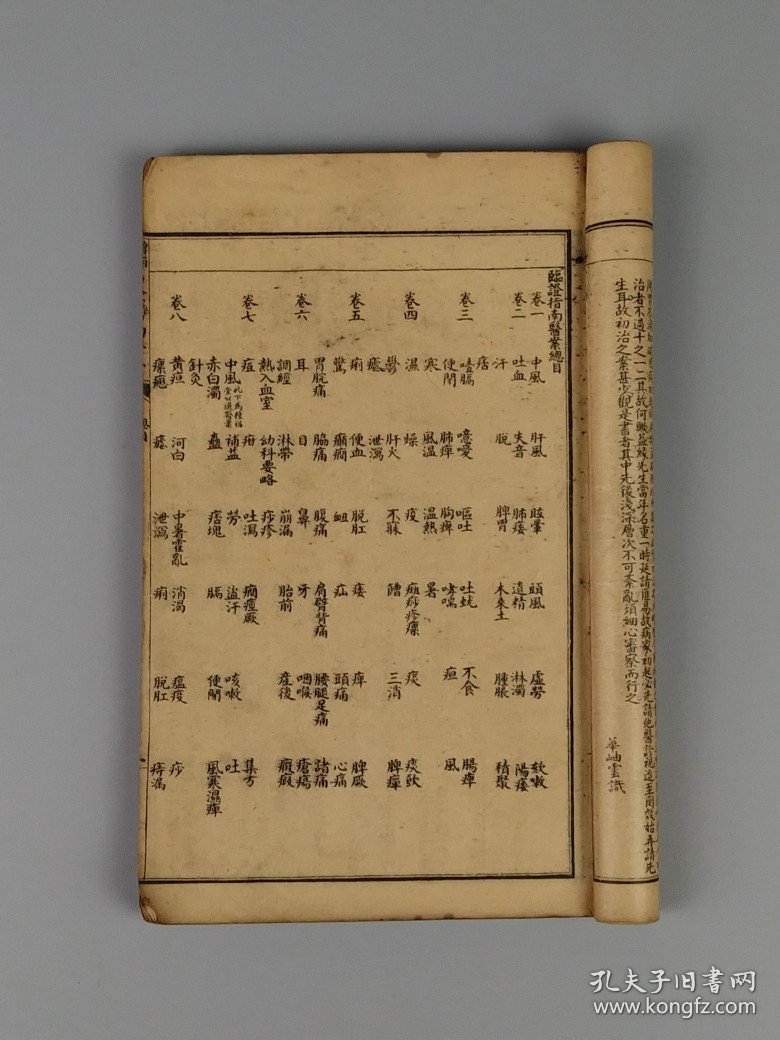 治者不過十之一二其故何歟蓋緣先生當年名重一時延請匪易故病家初起必先請他醫診視迨至罔效始再請先
生耳故初治之案甚少觀是書者其中先後淺深層次不可紊亂須細心審察而行之
華岫雲識
臨證指南醫案總目
卷一 中風 肝風 眩暈 頭風 虛勞 欬嗽
卷二 吐血 失音 肺痿 遺精 淋濁 陽痿
汗 脫 脾胃 木乘土 腫脹 積聚
痞
卷三 噎膈 噫噯 嘔吐 吐蚘 不食 腸痺
便閉 肺痺 胸痺 哮喘 疸 風
寒 風溫 溫熱 暑
卷四 濕 燥 疫 斑痧疹瘰 痰 痰飲
鬱 肝火 不寐 嘈 三消 脾癉
瘧 泄瀉
卷五 痢 便血 脫肛 痿 痺 脾厥
驚 癲癇 衄 疝 頭痛 心痛
胃脘痛 脇痛 腹痛 肩臂背痛 腰腿足痛 諸痛
卷六 耳 目 鼻 牙 咽喉 瘡瘍
調經 淋帶 崩漏 胎前 產後 癥瘕
熱入血室 幼科要略 痧疹
卷七 痘 疳 吐瀉 癇痙厥 集方
中風 補益 勞 盜汗 咳嗽 吐
赤白濁 蠱 痞塊 膈 便閉 風寒濕痺
針灸
卷八 黃疸 河白 中暑霍亂 消渴 瘟疫 痧
瘰癧 瘧 泄瀉 痢 脫肛 痔漏
孔夫子旧书网
www.kongfz.com